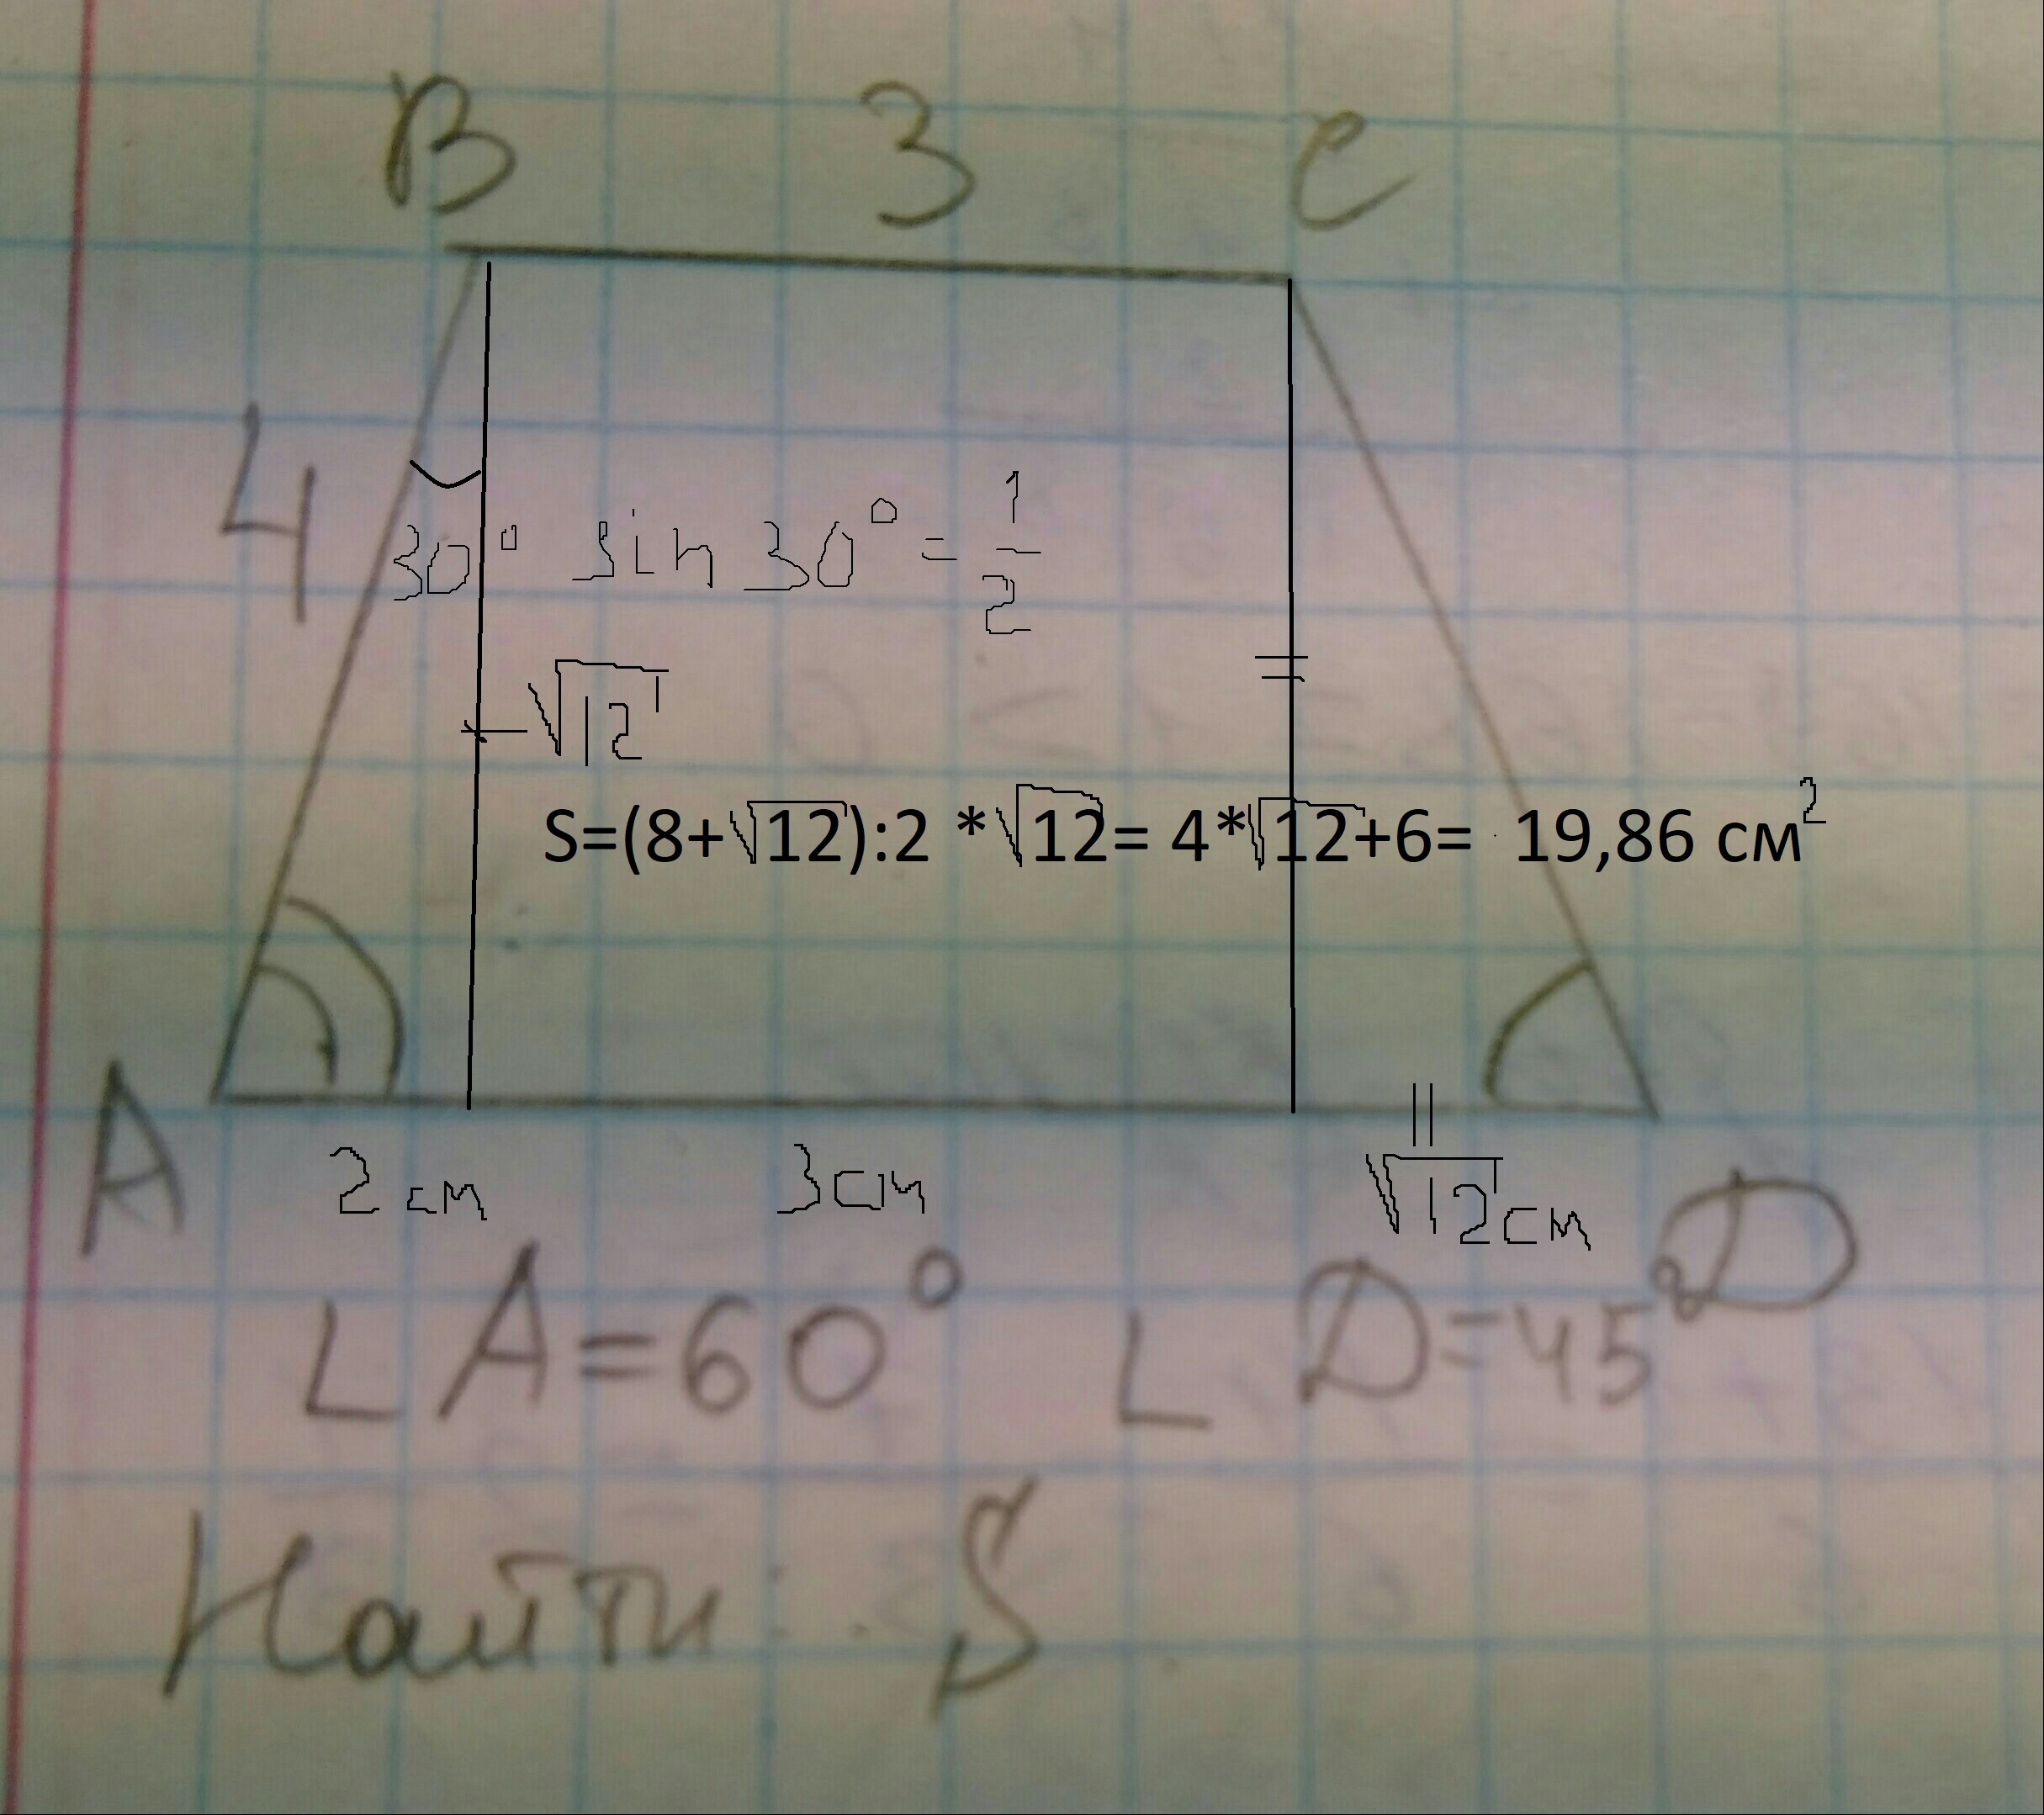 B 3 C
4
30° sin 30° = 1/2
√12
S=(8+√12):2 *√12= 4*√12+6= 19,86 см²
A 2 см 3 см √12 см D
∟A=60° ∟D=45°
Найти: S